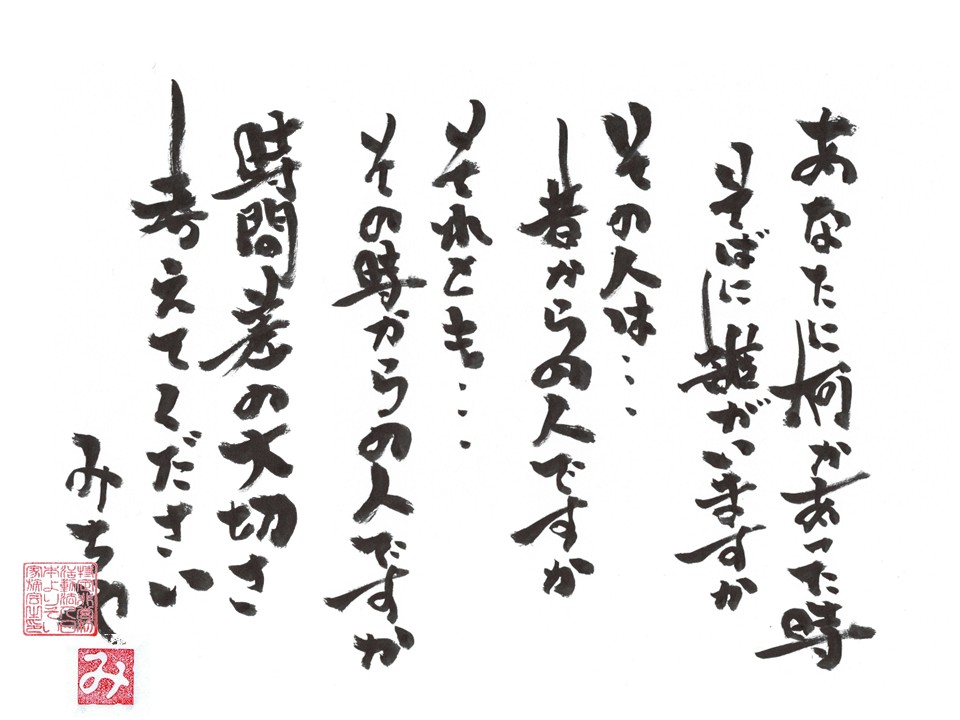 あなたに何かあった時
そばに誰がいますか
その人は・・・
昔からの人ですか
それとも・・・
その時からの人ですか
時間差の大切さ
考えてください
みちや
み